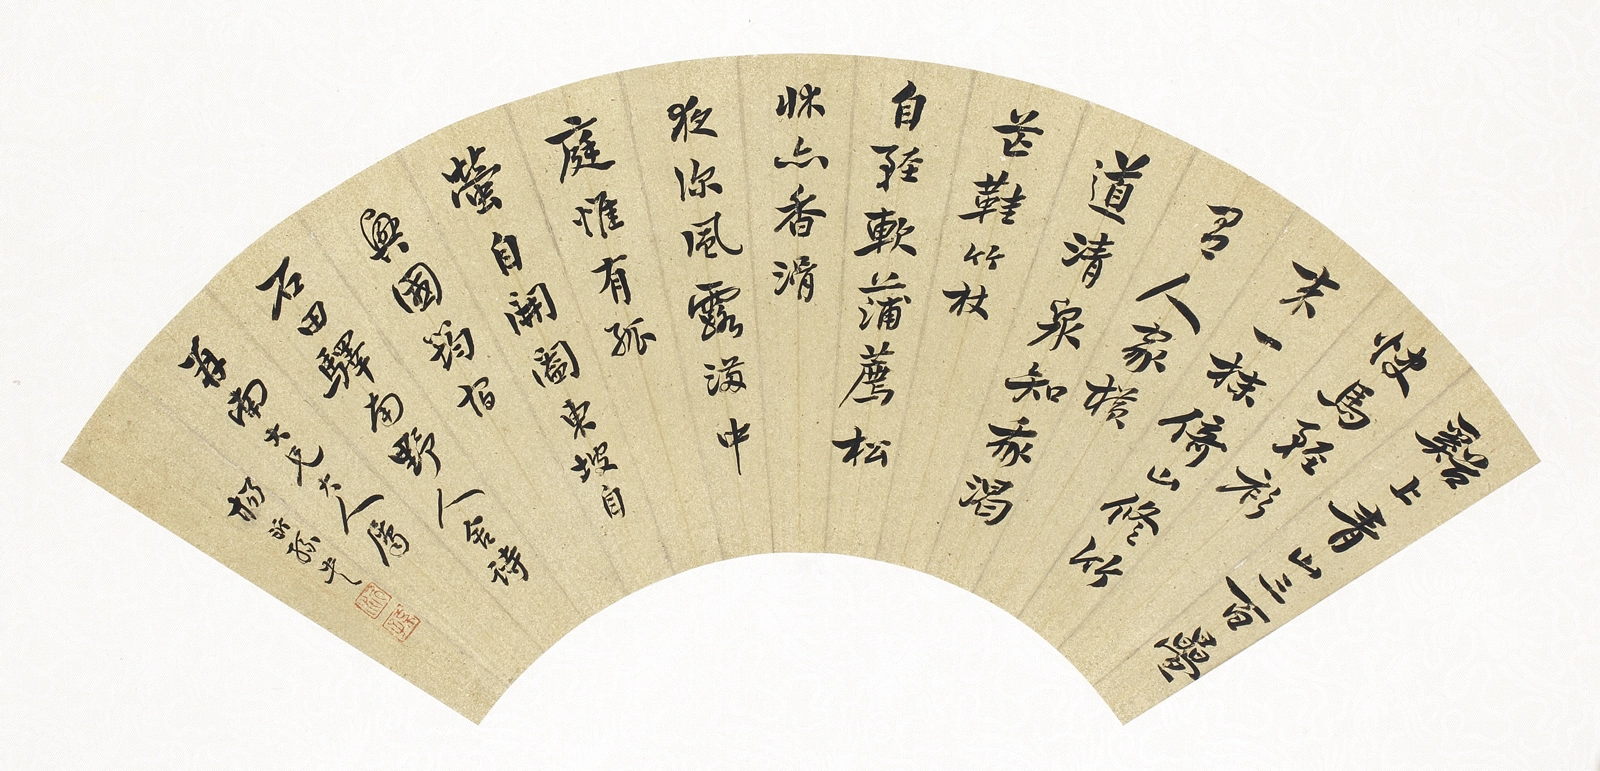 谿上青山三百疊
快馬輕衫
来一抹倚山修竹
有人家橫
道清泉知我渴
芒鞋竹杖
自輕軟蒲薦松
牀亦香滑
夜深風露滿中
庭惟有孤
螢自開闔東坡自
興國筠宿
石田驛南野人舍詩
南大兄大人屬
楊沂孫